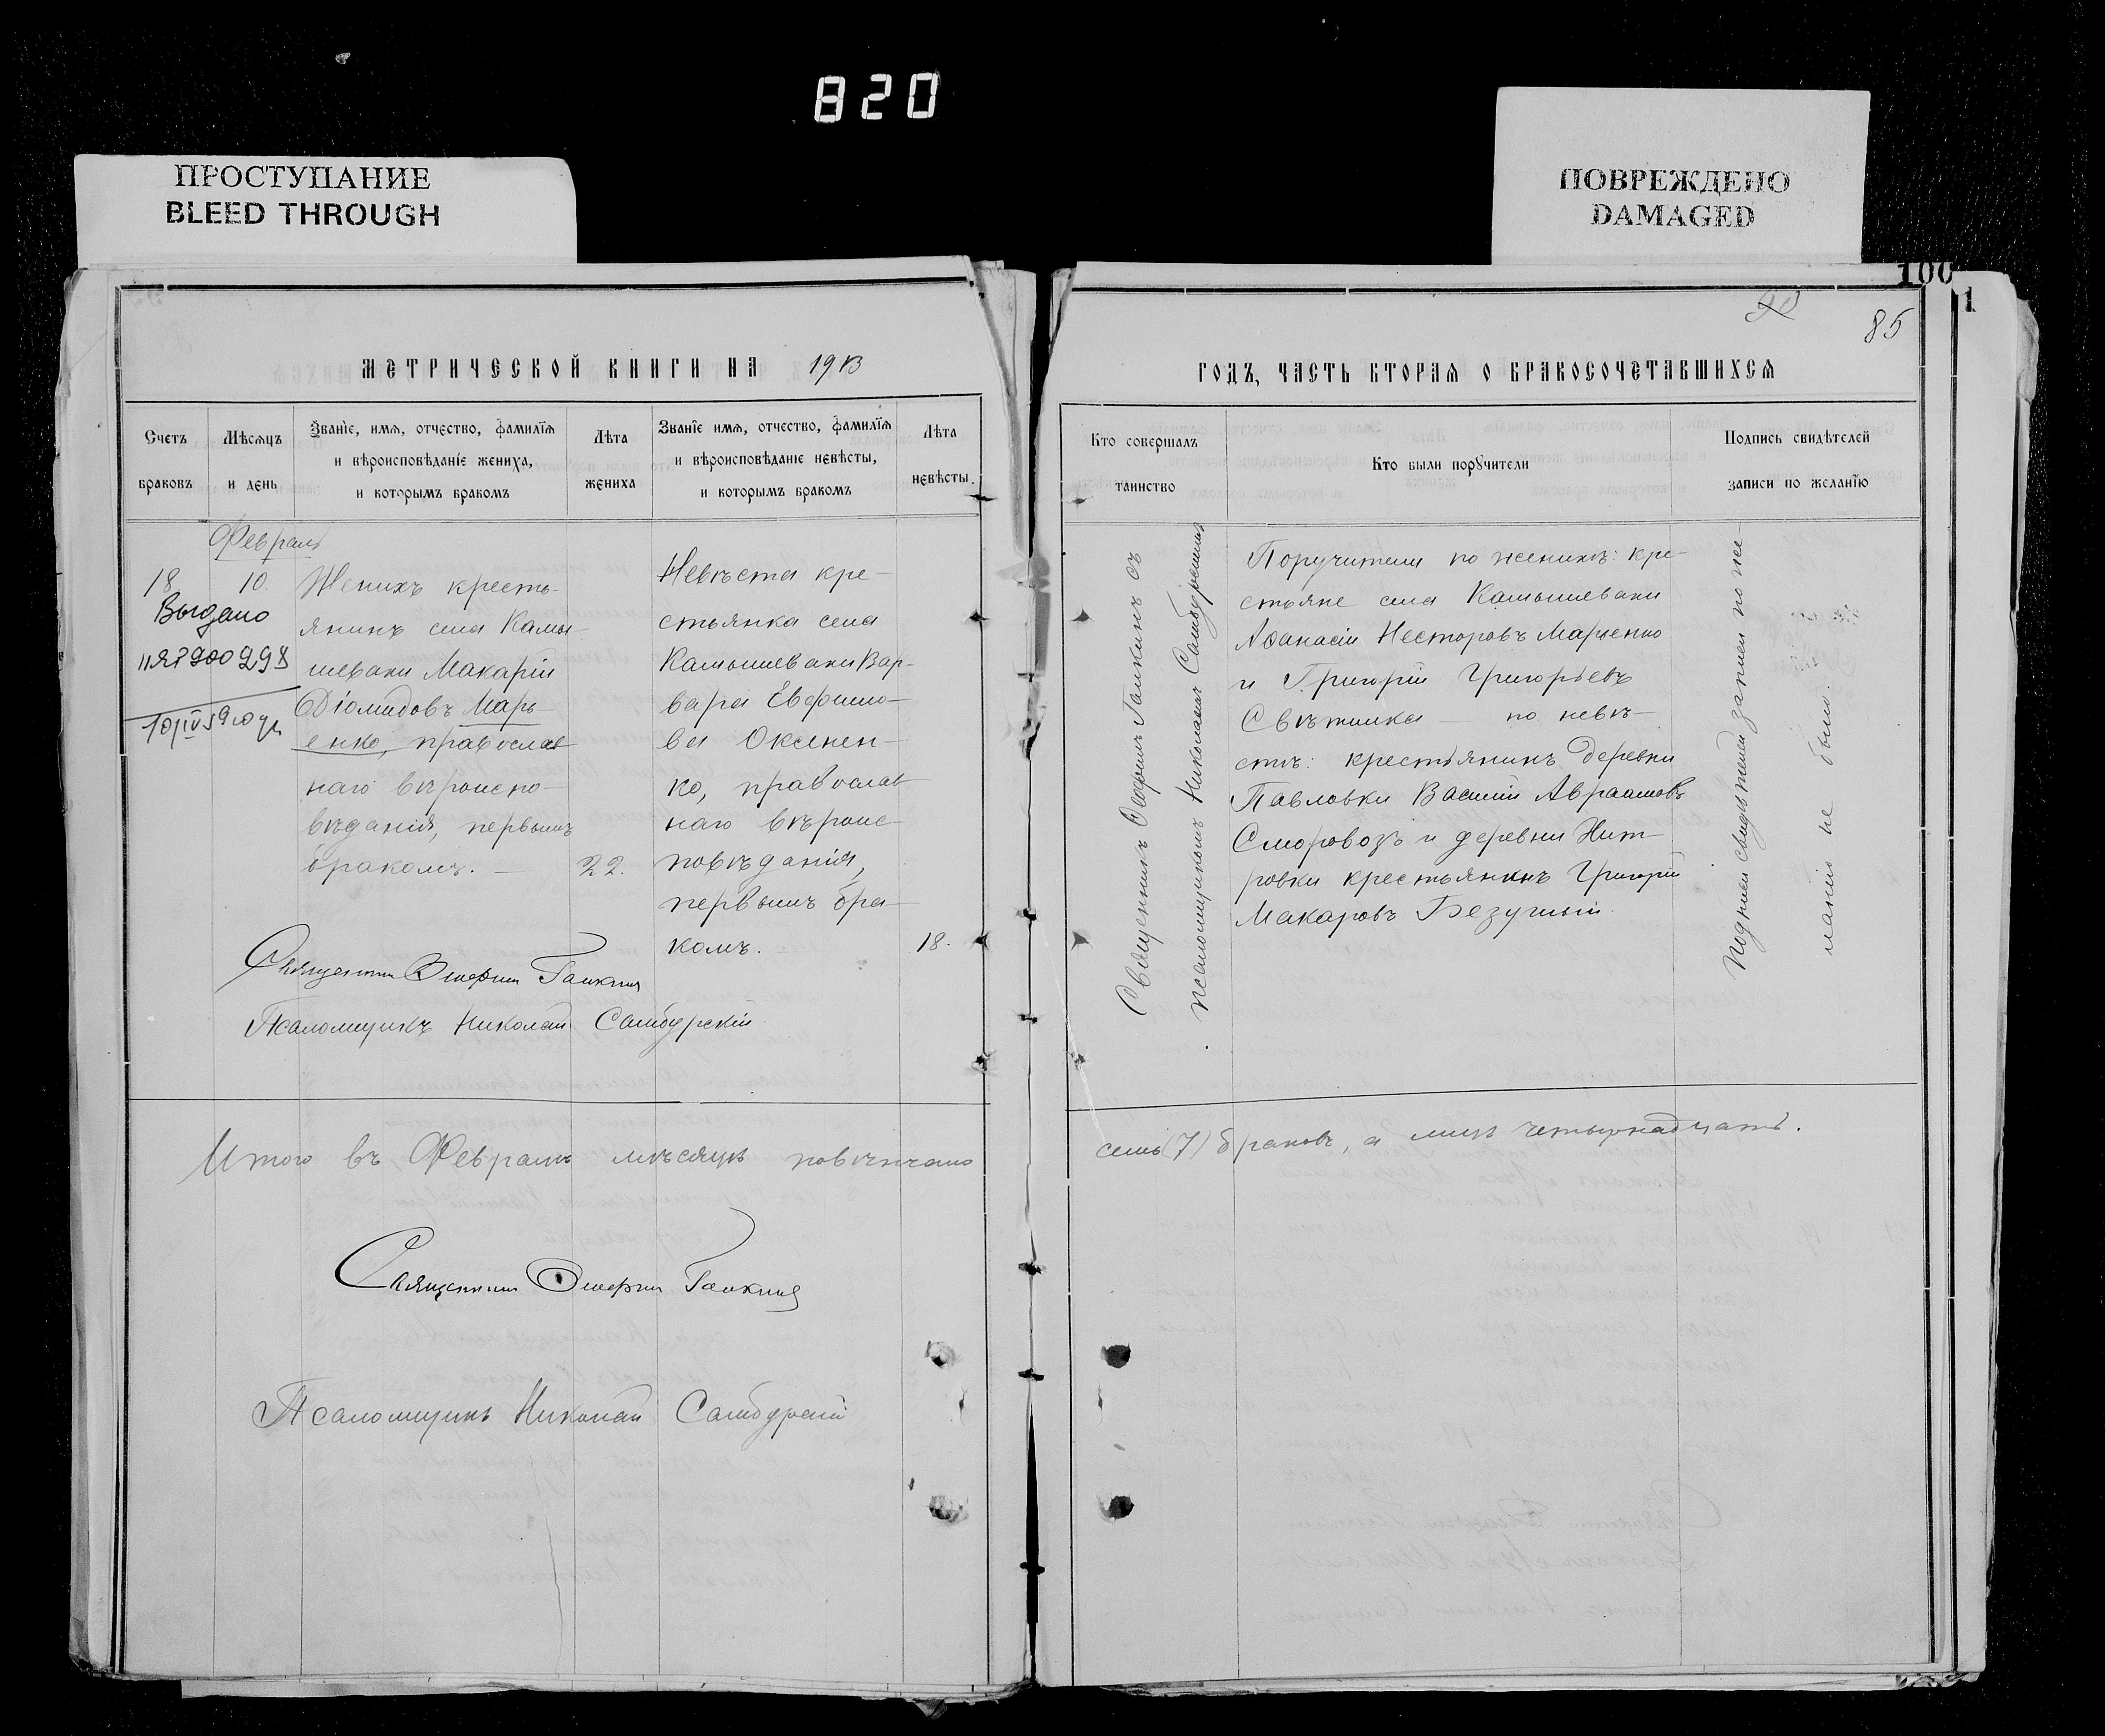 820
ПРОСТУПАНИЕ
BLEED THROUGH
ПОВРЕЖДЕНО
DAMAGED
100
1
85
МЕТРИЧЕСКОЙ КНИГИ НА 1913
ГОДЪ, ЧАСТЬ ВТОРАЯ О БРАКОСОЧЕТАВШИХСЯ
Счетъ
браковъ
Мѣсяцъ
и день
Званіе, имя, отчество, фамилія
и вѣроисповѣданіе жениха,
и которымъ бракомъ
Лѣта
жениха
Званіе имя, отчество, фамилія
и вѣроисповѣданіе невѣсты,
и которымъ бракомъ
Лѣта
невѣсты.
Кто совершалъ
таинство
Кто были поручители
Подпись свидѣтелей
записи по желанію
Февраль
18
10.
Выдано
Женихъ кресть-
янинъ села Камы-
шевахи Макарій
Діомидовъ Марч-
енко, православ
наго вѣроиспо-
вѣданія, первымъ
бракомъ. —
22.
Невѣста кре-
стьянка села
Камышевахи Вар-
вара Евфимо-
ва Оксенен-
ко, православ
наго вѣроис-
повѣданія,
первымъ бра-
комъ.
18.
Священникъ Галкинъ
Псаломщикъ Николай Самбурскій
Священникъ Галкинъ съ
псаломщикомъ Николаемъ Самбурскимъ
Поручители по женихѣ: кре-
стьяне села Камышевахи
Аѳанасій Несторовъ Марченко
и Григорій Григорьевъ
Свѣтлика — по невѣ-
стѣ: крестьянинъ деревни
Павловки Василій Авраамовъ
и деревни
ровки крестьянинъ Григорій
Макаровъ Безуглый.
Подписи свидѣтелей записи по же-
ланію не было.
Итого въ Февралѣ мѣсяцѣ повѣнчано
семь (7) браковъ, а лицъ четырнадцать.
Священникъ Галкинъ
Псаломщикъ Николай Самбурскій